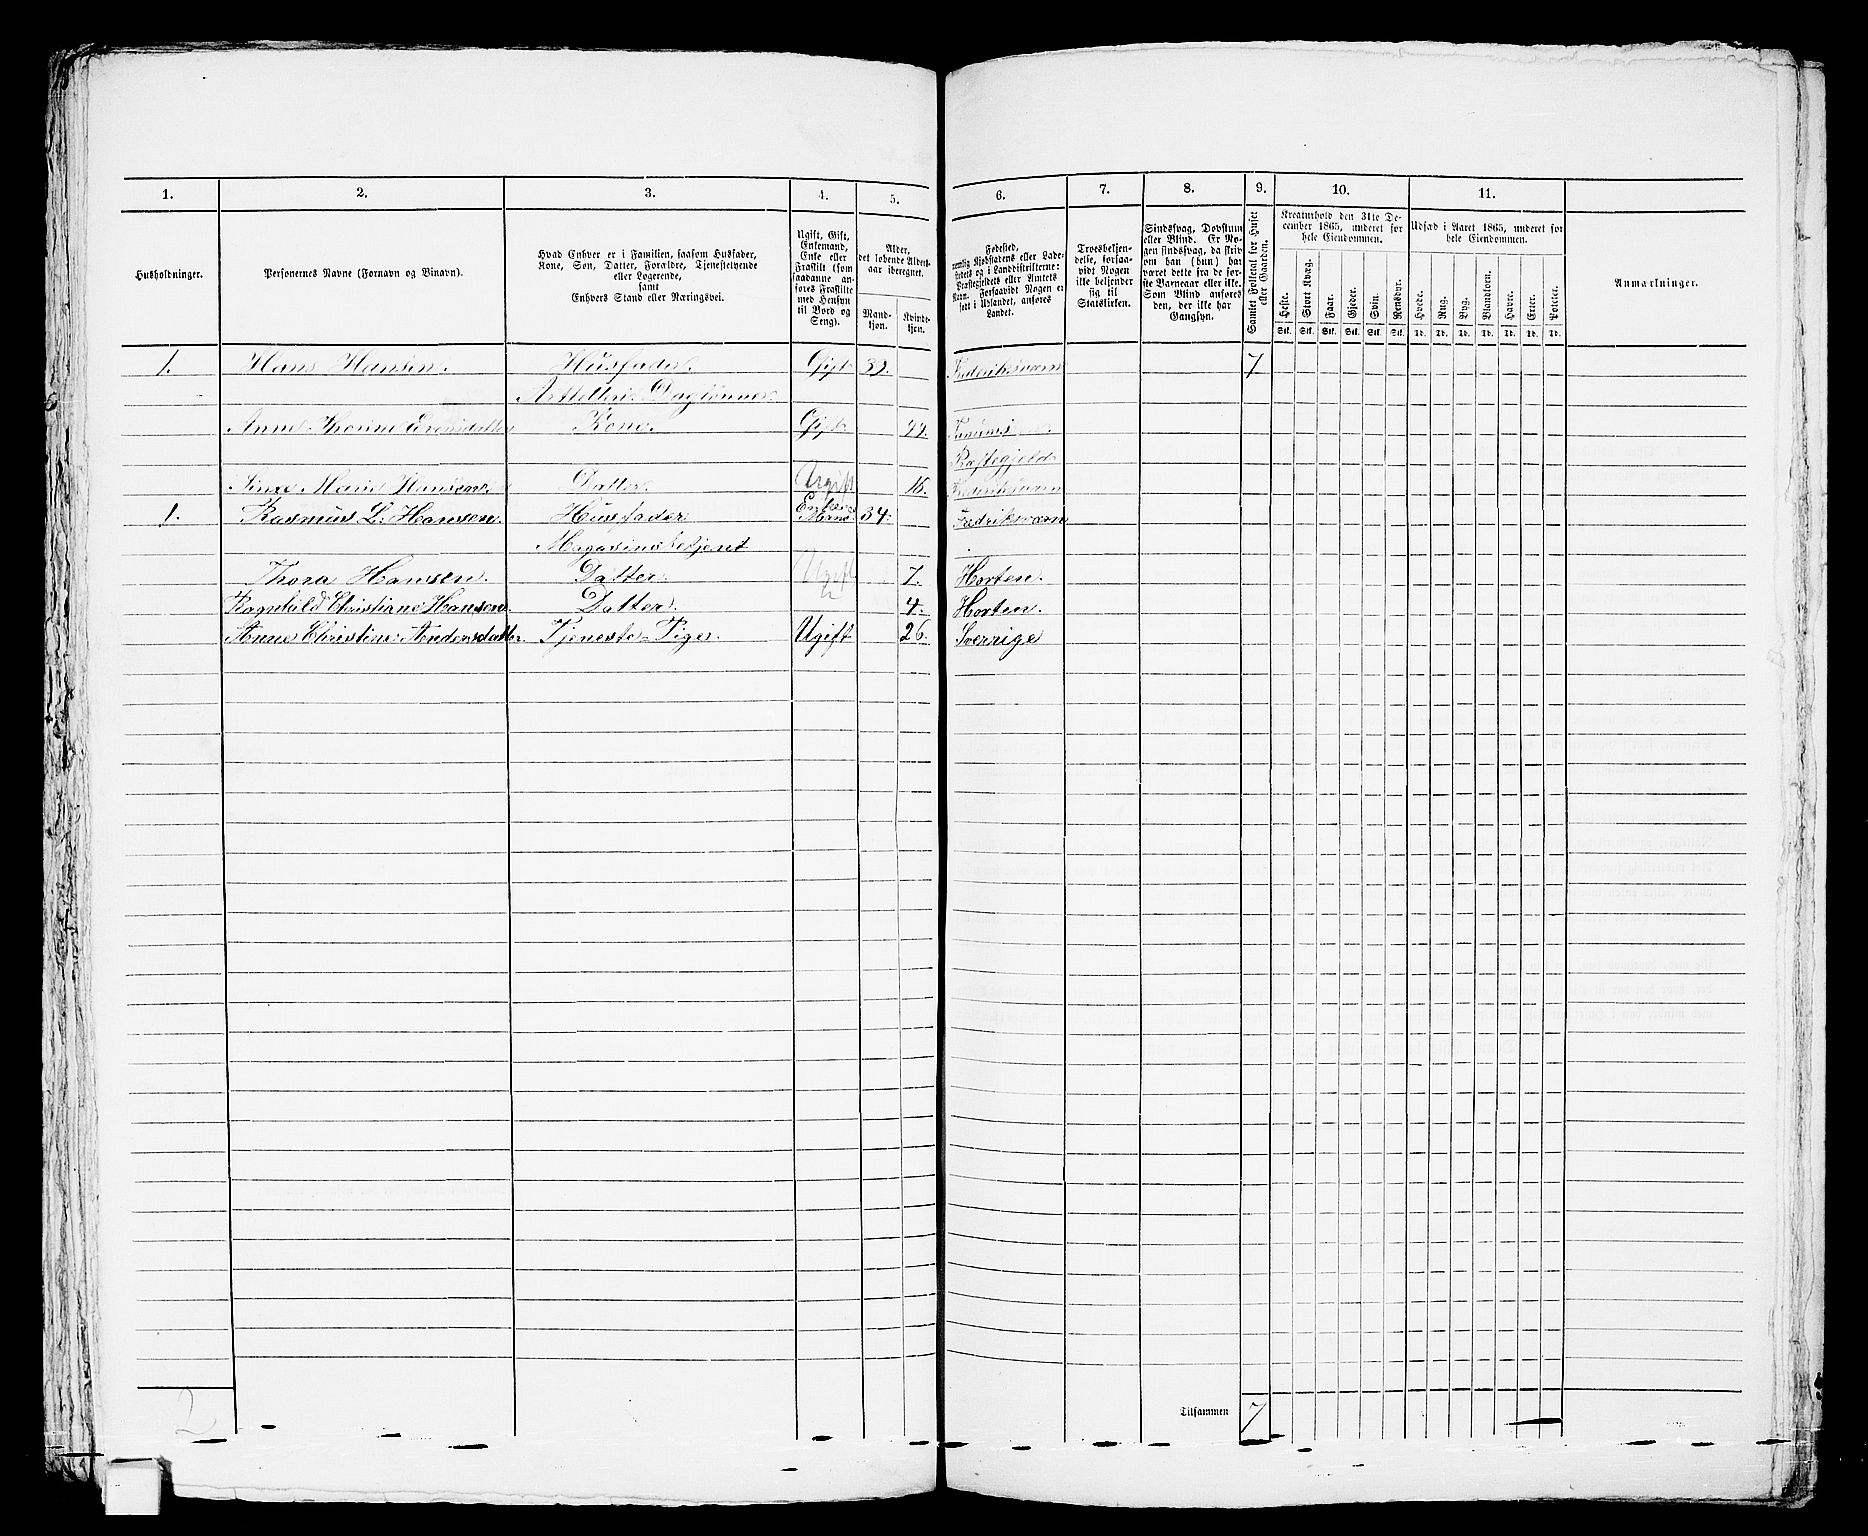 1. 2. 3. 4. 5. 6. 7. 8. 9. 10. 11.
Husholdninger.
Personernes Navne (Fornavn og Binavn).
Hvad Enhver er i Familien, saasom Husfader,
Kone, Søn, Datter, Forældre, Tjenestetyende
eller Logerende,
samt
Enhvers Stand eller Næringsvei.
Ugift, Gift,
Enkemand,
Enke eller
Fraskilt (som
saadanne an-
føres Fraskilte
med Hensyn
til Bord og
Seng).
Alder,
det løbende Alders-
aar iberegnet.
Mand-
kjøn.
Kvinde-
kjøn.
Fødested,
nemlig Kjøbstadens eller Lade-
stedets og i Landdistrikterne:
Præstegjeldets eller Amtets
Navn. Forsaavidt Nogen er
født i Udlandet, anføres
Landet.
Troesbekjen-
delse, forsaa-
vidt Nogen
ikke bekjender
sig til
Statskirken.
Sindssvag, Døvstum
eller Blind. Er No-
gen sindssvag, da skriv
om han (hun) har
været dette fra de før-
ste Barneaar eller ikke.
Som Blind anføres
den, der ikke har
Gangsyn.
Samlet Folketal for Huset
eller Gaarden.
Kreaturhold den 31te De-
cember 1865, underet for
hele Eiendommen.
Heste. Stort Kvæg. Faar. Gjeder. Svin. Rensdyr.
Stk. Stk. Stk. Stk. Stk. Stk.
Udsæd i Aaret 1865, underet for
hele Eiendommen.
Hvede. Rug. Byg. Blandkorn. Havre. Erter. Poteter.
Td. Td. Td. Td. Td. Td. Td.
Anmærkninger.
1. Hans Hansen. Husfader. Gift 39. Frederiksværn 7
Daglønner.
Kone. Gift
Præstegjeld
Marie Hansen. Datter. Ugift 16. Frederiksværn
1. Rasmus L. Hansen. Husfader Enke Mand 34. Fredriksværn
Magasinsbetjent
Thora Hansen. Datter. Ugift 7. Horten.
Ragnhild Christiane Hansen. Datter. 4. Horten.
Anne Christine Andersdatter. Tjeneste-Pige. Ugift 26. Sverrige
2
Tilsammen 7